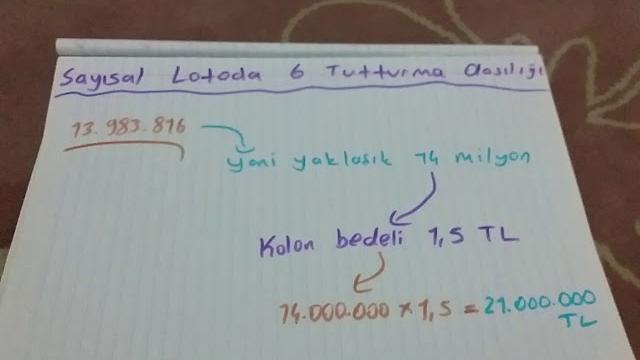 Sayısal Lotoda 6 Tutturma Olasılığı
13.983.816
yani yaklasık 14 milyon
Kolon bedeli 1,5 TL
14.000.000 x 1,5 = 21.000.000
TL